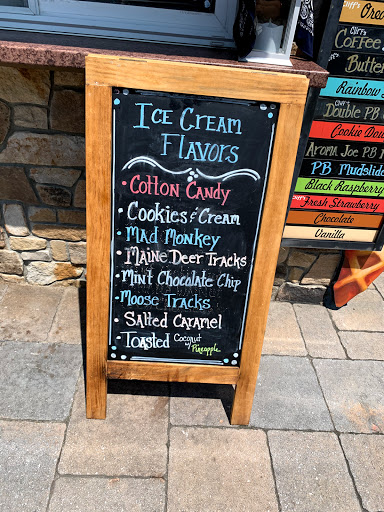 Ice Cream
Flavors
• Cotton Candy
• Cookies & Cream
• Mad Monkey
• Maine Deer Tracks
• Mint Chocolate Chip
• Moose Tracks
• Salted Caramel
• Toasted Coconut w/ Pineapple
Cliff's
Oreo
Cliff's
Coffee
Butter
Rainbow
Cliff's
Double PB
Cookie Dou
Aroma Joe PB
PB Mudslide
Black Raspberry
Cliff's
Fresh Strawberry
Chocolate
Vanilla